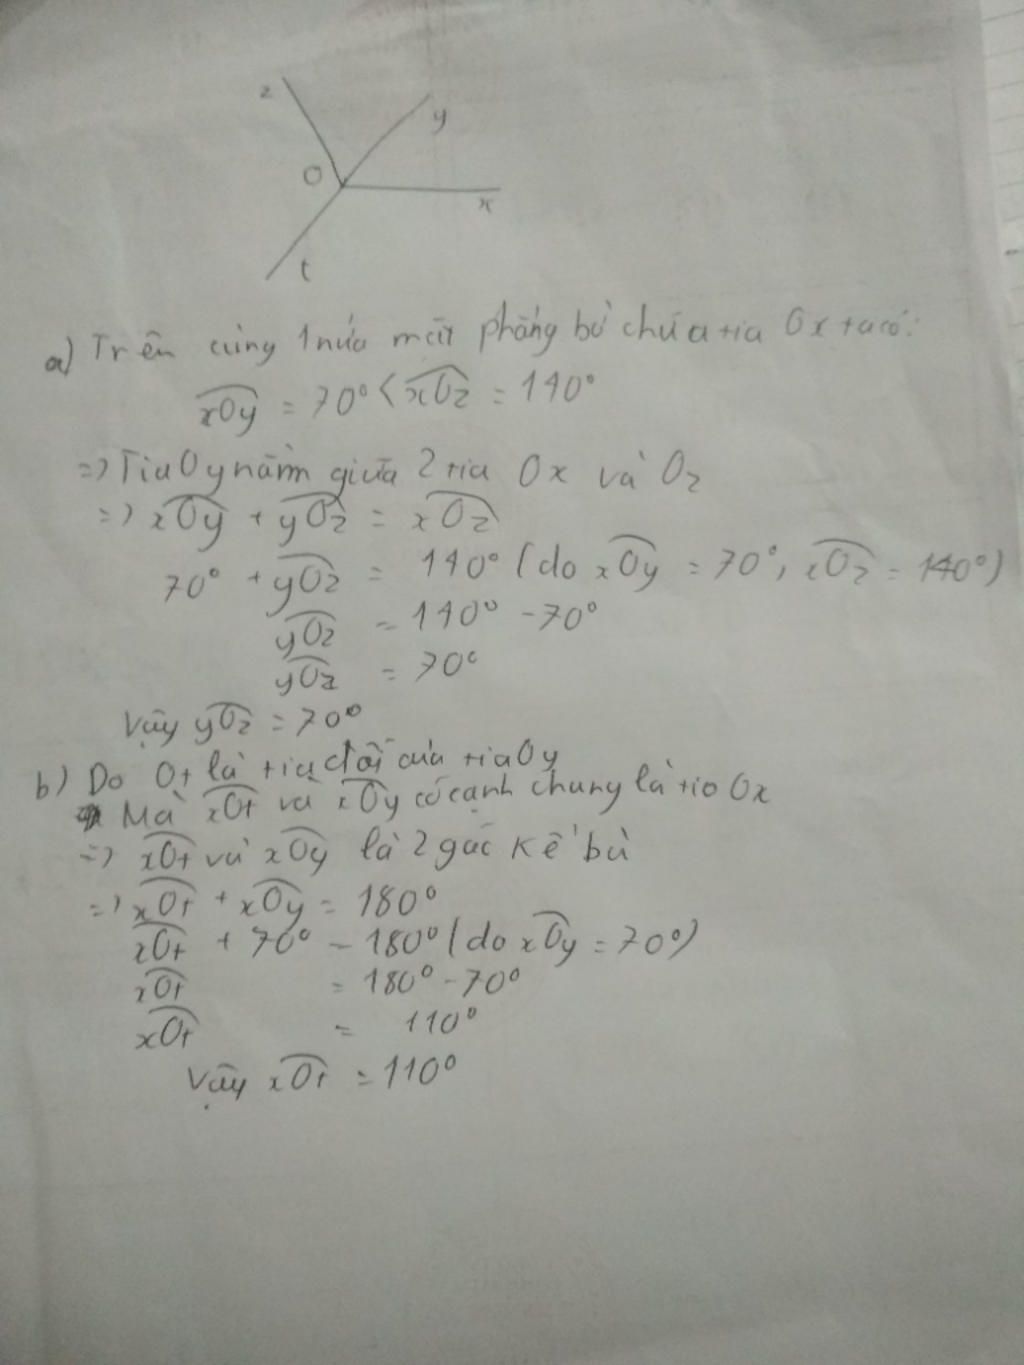 z
y
O
x
t
a) Trên cùng 1 nửa mặt phẳng bờ chứa tia Ox ta có:
xOy = 70° < xOz = 140°
=> Tia Oy nằm giữa 2 tia Ox và Oz
=> xOy + yOz = xOz
70° + yOz = 140° (do xOy = 70°, xOz = 140°)
yOz = 140° - 70°
yOz = 70°
Vậy yOz = 70°
b) Do Ot là tia đối của tia Oy
Mà xOt và xOy có cạnh chung là tia Ox
=> xOt và xOy là 2 góc kề bù
=> xOt + xOy = 180°
xOt + 70° = 180° (do xOy = 70°)
xOt = 180° - 70°
xOt = 110°
Vậy xOt = 110°